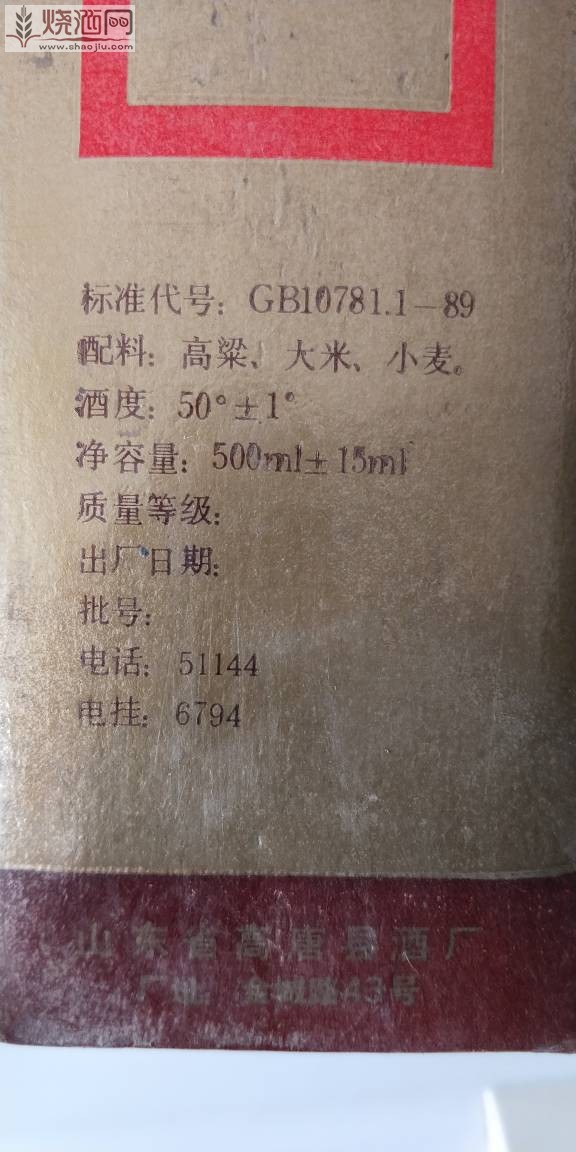 烧酒网
www.shaojiu.com
标准代号：GB10781.1—89
配料：高粱、大米、小麦。
酒度：50°±1°
净容量：500ml±15ml
质量等级：
出厂日期：
批号：
电话：51144
电挂：6794
山东省高唐县酒厂
厂址 金城路43号